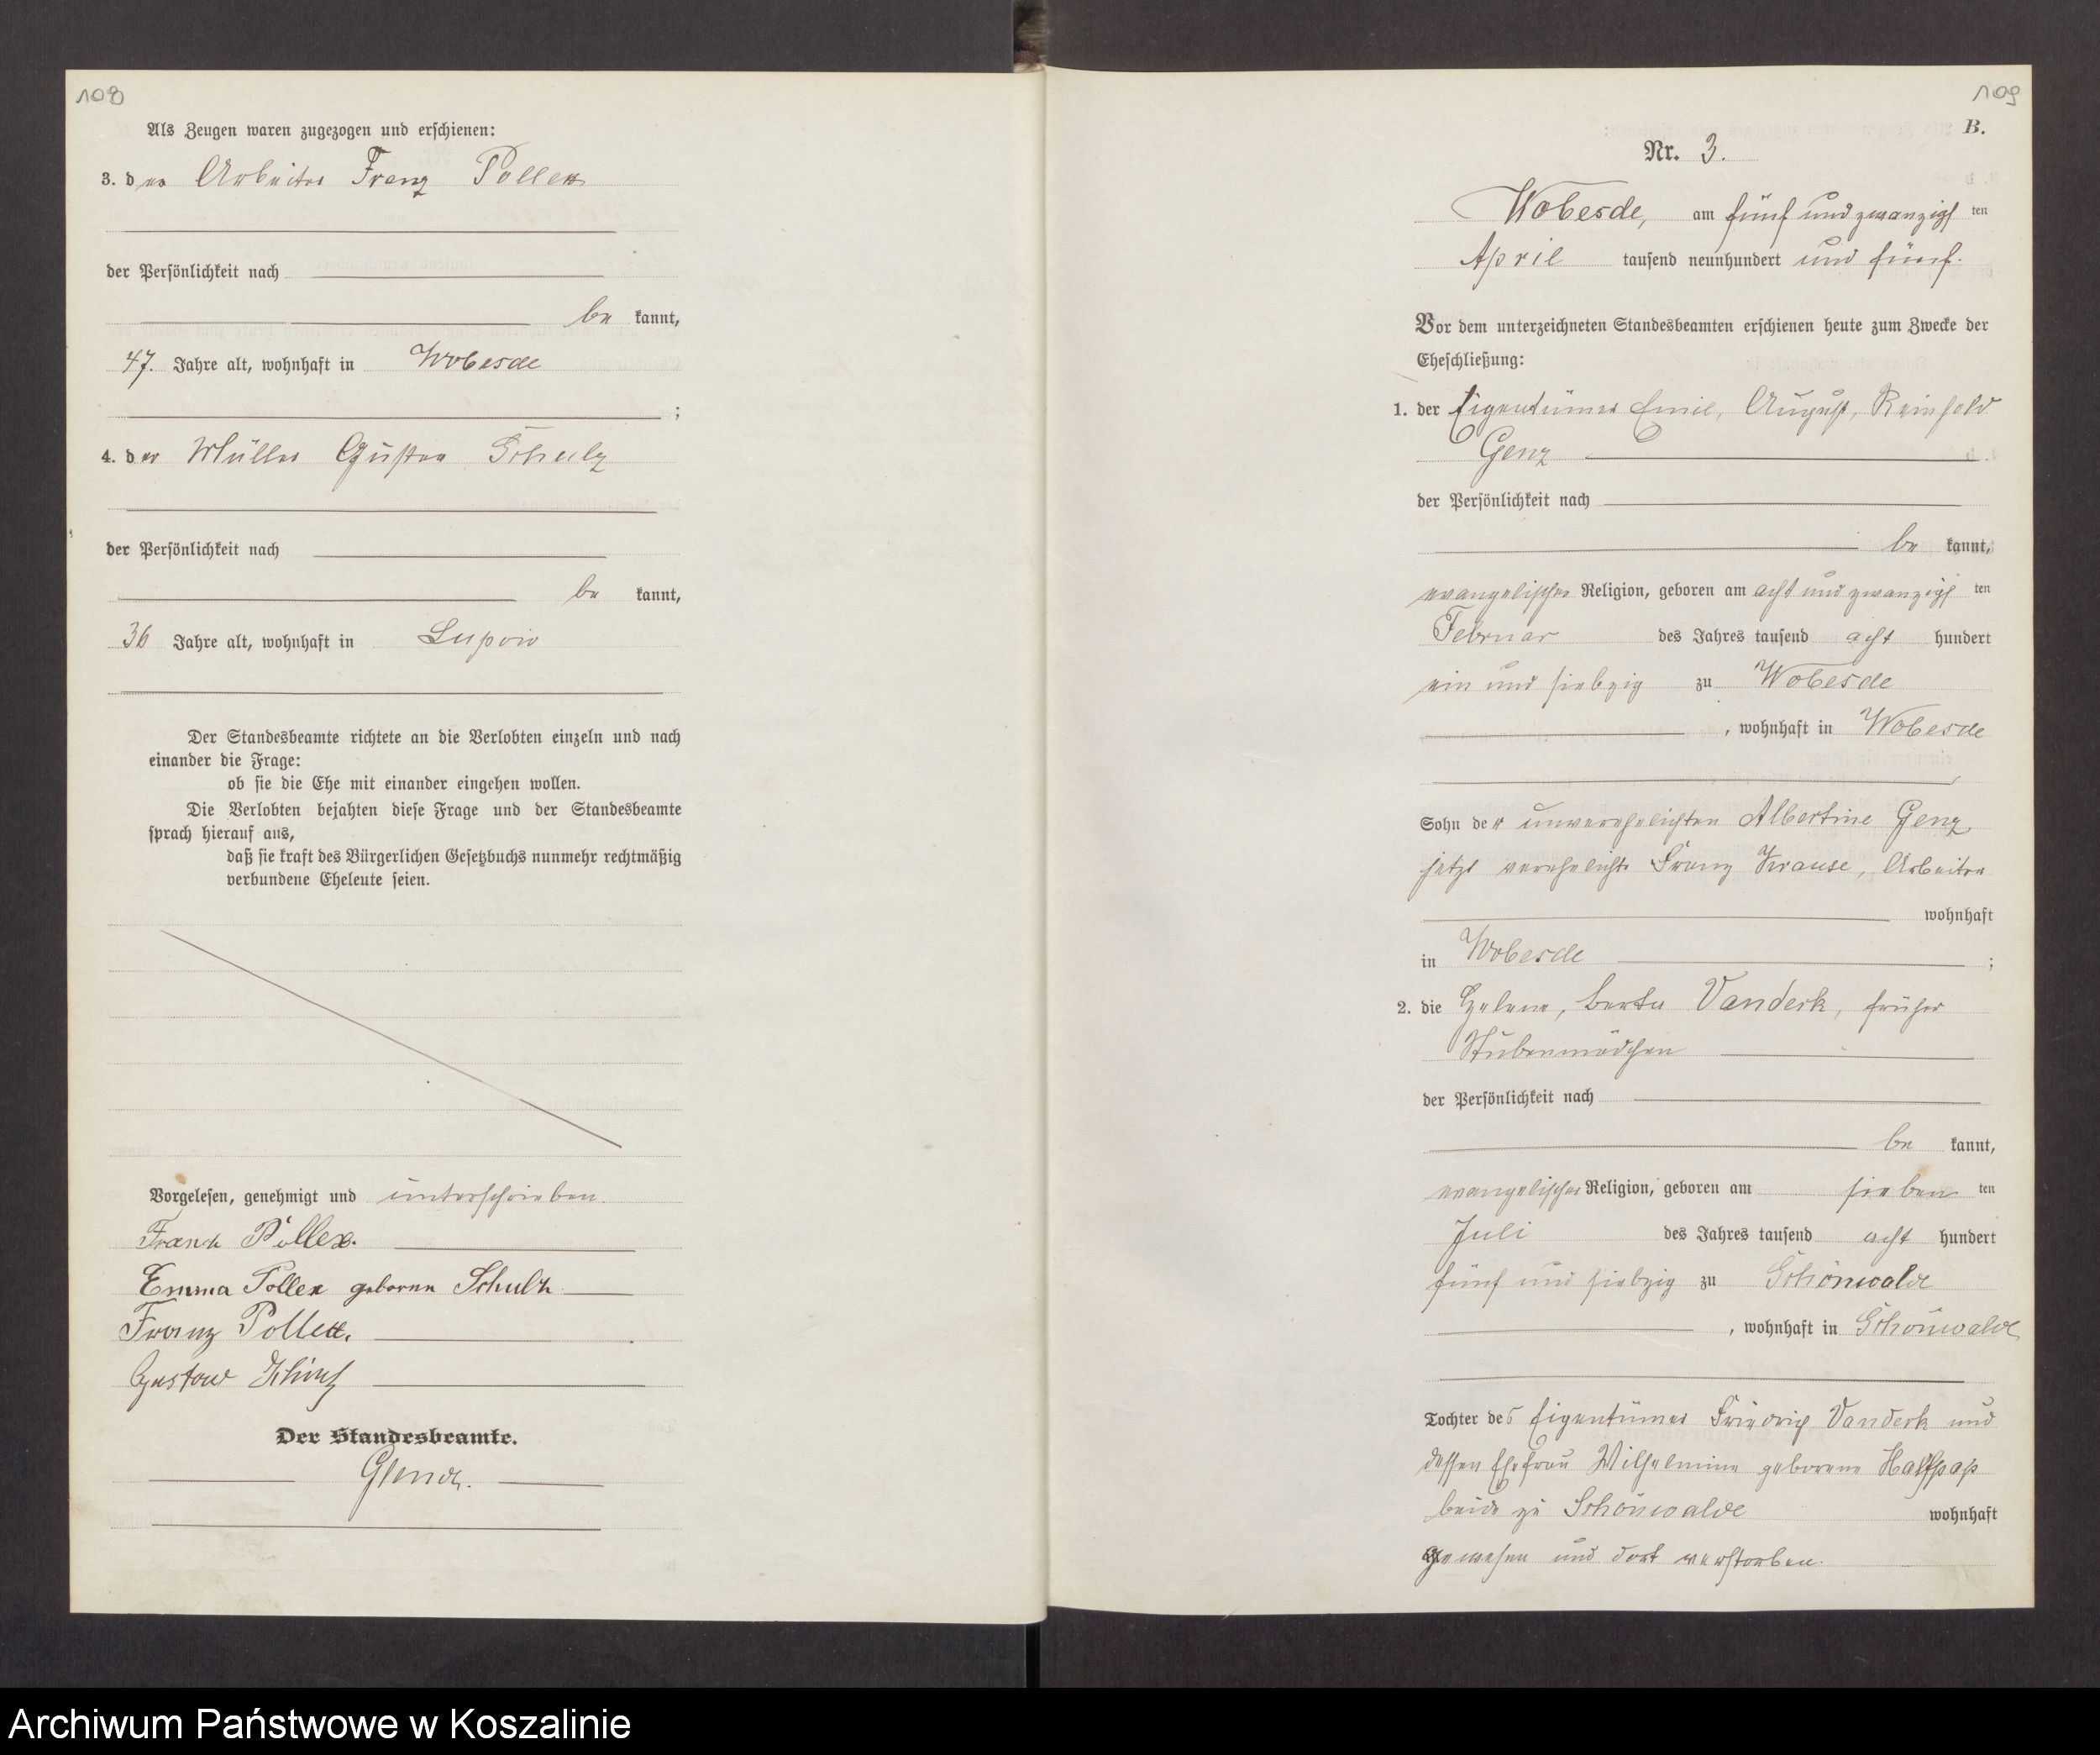 108
Als Zeugen waren zugezogen und erschienen:
3. der Arbeiter Franz Pollex
der Persönlichkeit nach
be kannt,
47. Jahre alt, wohnhaft in Wobesde
;
4. der Müller Gustav Schulz
der Persönlichkeit nach
be kannt,
36 Jahre alt, wohnhaft in Lupow
Der Standesbeamte richtete an die Verlobten einzeln und nach
einander die Frage:
ob sie die Ehe mit einander eingehen wollen.
Die Verlobten bejahten diese Frage und der Standesbeamte
sprach hierauf aus,
daß sie kraft des Bürgerlichen Gesetzbuchs nunmehr rechtmäßig
verbundene Eheleute seien.
Vorgelesen, genehmigt und unterschrieben.
Frank Pollex.
Emma Pollex geborene Schulz
Franz Pollex.
Gustav Schulz
Der Standesbeamte.
109
B.
Nr. 3.
Wobesde, am fünf und zwanzigsten
April tausend neunhundert und fünf.
Vor dem unterzeichneten Standesbeamten erschienen heute zum Zwecke der
Eheschließung:
1. der Eigentümer Emil, August, Reinhold
Genz
der Persönlichkeit nach
be kannt,
evangelischer Religion, geboren am acht und zwanzigsten
Februar des Jahres tausend acht hundert
ein und siebzig zu Wobesde
, wohnhaft in Wobesde
Sohn der unverehelichten Albertine Genz,
jetzt verehelichte Franz Krause, Arbeiter
wohnhaft
in Wobesde ;
2. die Helene, Berta Vanderk, früher
Stubenmädchen
der Persönlichkeit nach
be kannt,
evangelischer Religion, geboren am siebenten
Juli des Jahres tausend acht hundert
fünf und siebzig zu Schönwalde
, wohnhaft in Schönwalde
Tochter des Eigentümer Friedrich Vanderk und
dessen Ehefrau Wilhelmine geborene Halfpap
beide zu Schönwalde wohnhaft
gewesen und dort verstorben.
Archiwum Państwowe w Koszalinie